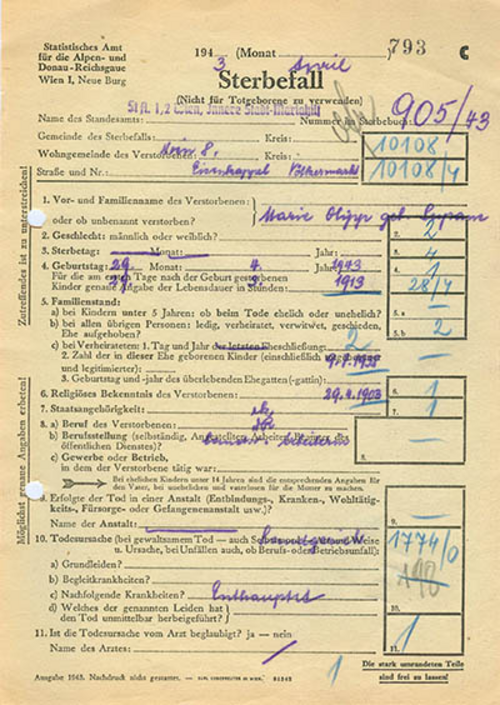 Statistisches Amt
für die Alpen- und
Donau-Reichsgaue
Wien I, Neue Burg
194 3 (Monat April) 793 C
Sterbefall
(Nicht für Totgeborene zu verwenden)
St A. 1,2 Wien, Innere Stadt-Mariahilf
Name des Standesamts: Nummer im Sterbebuch: 905/43
Gemeinde des Sterbefalls: Kreis: 10108
Wohngemeinde des Verstorbenen: Wien 8, Kreis: 10108/4
Straße und Nr.: Eisenkappel Völkermarkt
Zutreffendes ist zu unterstreichen!
1. Vor- und Familienname des Verstorbenen:
oder ob unbenannt verstorben? Marie geb.
2. Geschlecht: männlich oder weiblich? 2. 2
3. Sterbetag: Monat: Jahr: 3. 4
4. Geburtstag: 29. Monat: 4. Jahr: 1943 4. 1
Für die am ersten Tage nach der Geburt gestorbenen
Kinder genaue Angabe der Lebensdauer in Stunden: 1913 28/4
5. Familienstand:
a) bei Kindern unter 5 Jahren: ob beim Tode ehelich oder unehelich? 5. a
b) bei allen übrigen Personen: ledig, verheiratet, verwitwet, geschieden,
Ehe aufgehoben? 5. b 2
c) bei Verheirateten: 1. Tag und Jahr der letzten Eheschließung: 2
2. Zahl der in dieser Ehe geborenen Kinder (einschließlich
und legitimierte):
3. Geburtstag und -jahr des überlebenden Ehegatten (-gattin):
6. Religiöses Bekenntnis des Verstorbenen: 29.4.1903 6. 1
7. Staatsangehörigkeit: 7. 1
Möglichst genaue Angaben erbeten!
8. a) Beruf des Verstorbenen:
b) Berufsstellung (selbständig, Angestellter, Arbeiter,
öffentlichen Dienstes)? 8. —
c) Gewerbe oder Betrieb,
in dem der Verstorbene tätig war:
Bei ehelichen Kindern unter 14 Jahren sind die entsprechenden Angaben für
den Vater, bei unehelichen und vaterlosen für die Mutter zu machen.
9. Erfolgte der Tod in einer Anstalt (Entbindungs-, Kranken-, Wohltätig-
keits-, Fürsorge- oder Gefangenenanstalt usw.)? —
Name der Anstalt: 9.
10. Todesursache (bei gewaltsamem Tod — auch Selbstmord — und Weise
u. Ursache, bei Unfällen auch, ob Berufs- oder Betriebsunfall): 1774/0
a) Grundleiden?
b) Begleitkrankheiten? 190
c) Nachfolgende Krankheiten? Enthauptet
d) Welches der genannten Leiden hat
den Tod unmittelbar herbeigeführt? 10.
11. Ist die Todesursache vom Arzt beglaubigt? ja — nein 11. 1
Name des Arztes:
1
Die stark umrandeten Teile
sind frei zu lassen!
Ausgabe 1943. Nachdruck nicht gestattet.